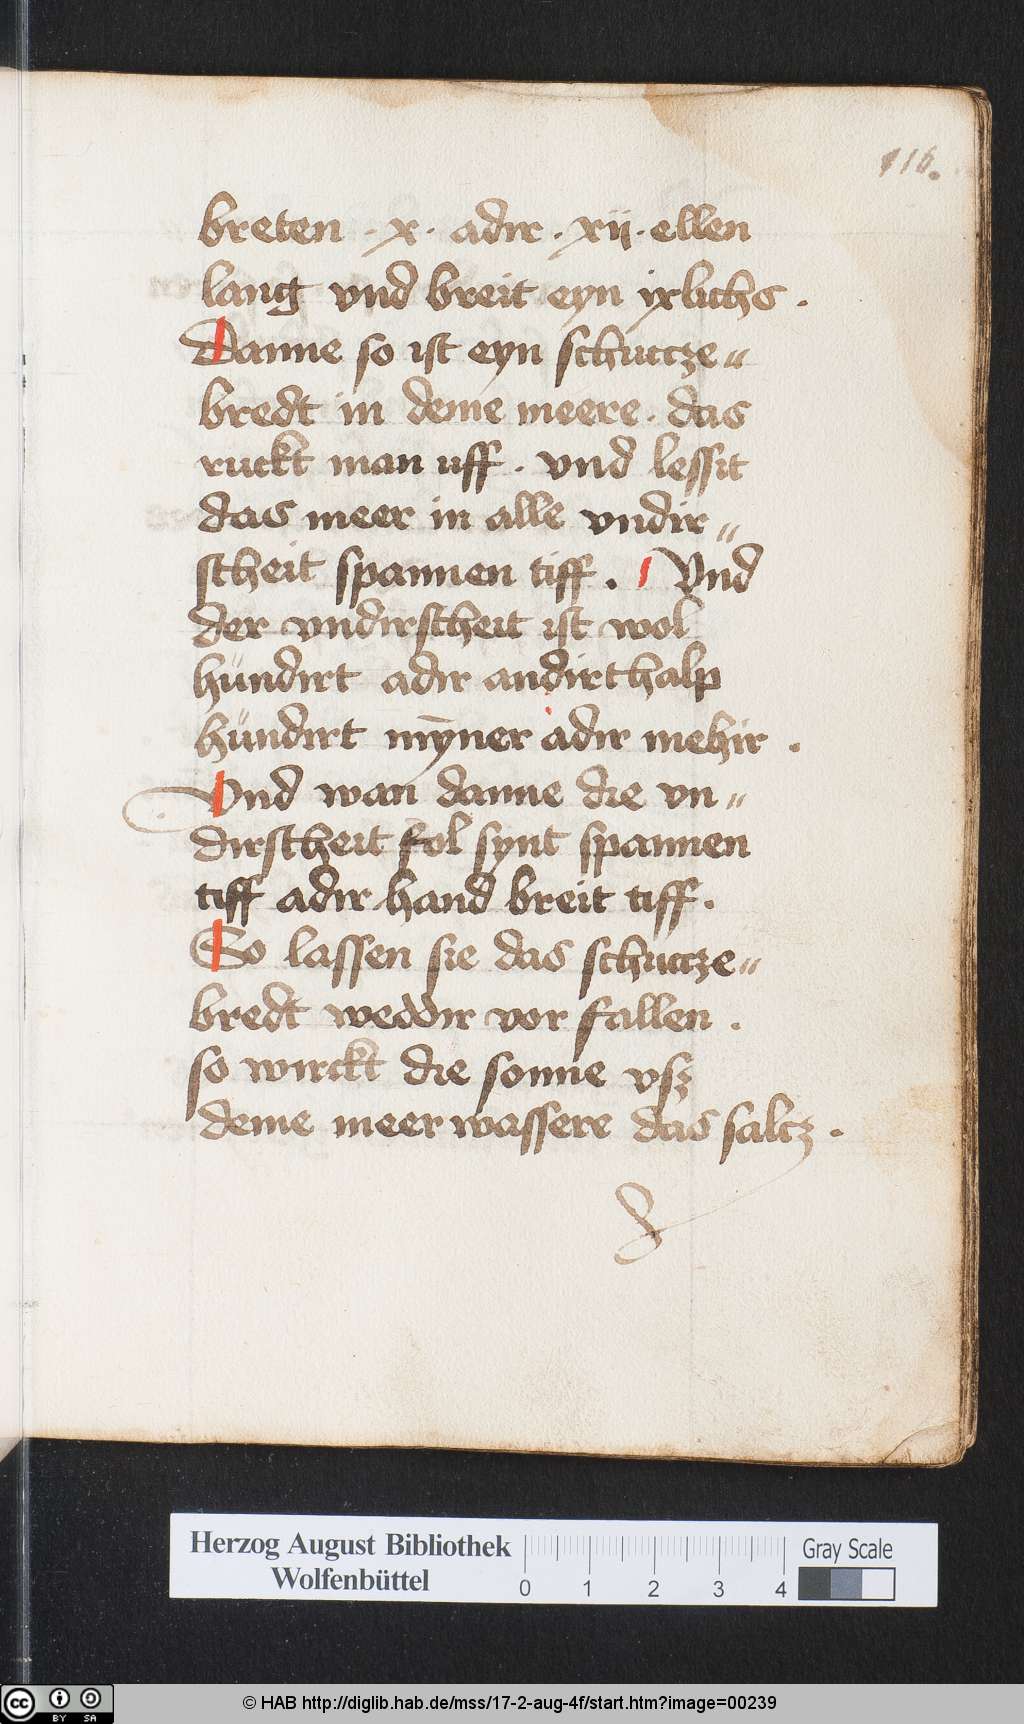 116.
breten · x · adir · xij · ellen
lang vnd breit eyn ixlichs .
Danne so ist eyn schuctze„
bredt in deme meere . das
ruckt man uff . vnd lessit
das meer in alle vndir„
scheit spannen tiff . Vnd
der vndirscheit ist wol
hündirt adir andirthalp
hündirt mÿner adir mehir .
Vnd wan danne die vn„
dirscheit fol synt spannen
tiff adir hand breit tiff .
So lassen sie das schuctze„
bredt weddir vor fallen .
so wirckt die sonne vsz
deme meer wassere das saltz .
Herzog August Bibliothek
Wolfenbüttel
0 1 2 3 4
Gray Scale
cc BY SA
© HAB http://diglib.hab.de/mss/17-2-aug-4f/start.htm?image=00239